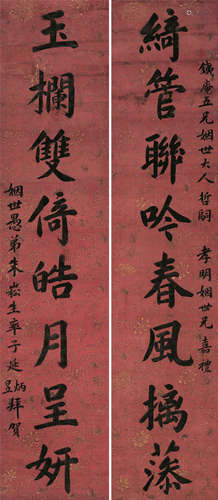 錢庵五兄姻世大人哲嗣 孝明姻世兄嘉禮
綺管聯吟春風摛藻
玉欄雙倚皓月呈妍
姻世愚弟朱崧生率子延炳昱拜賀